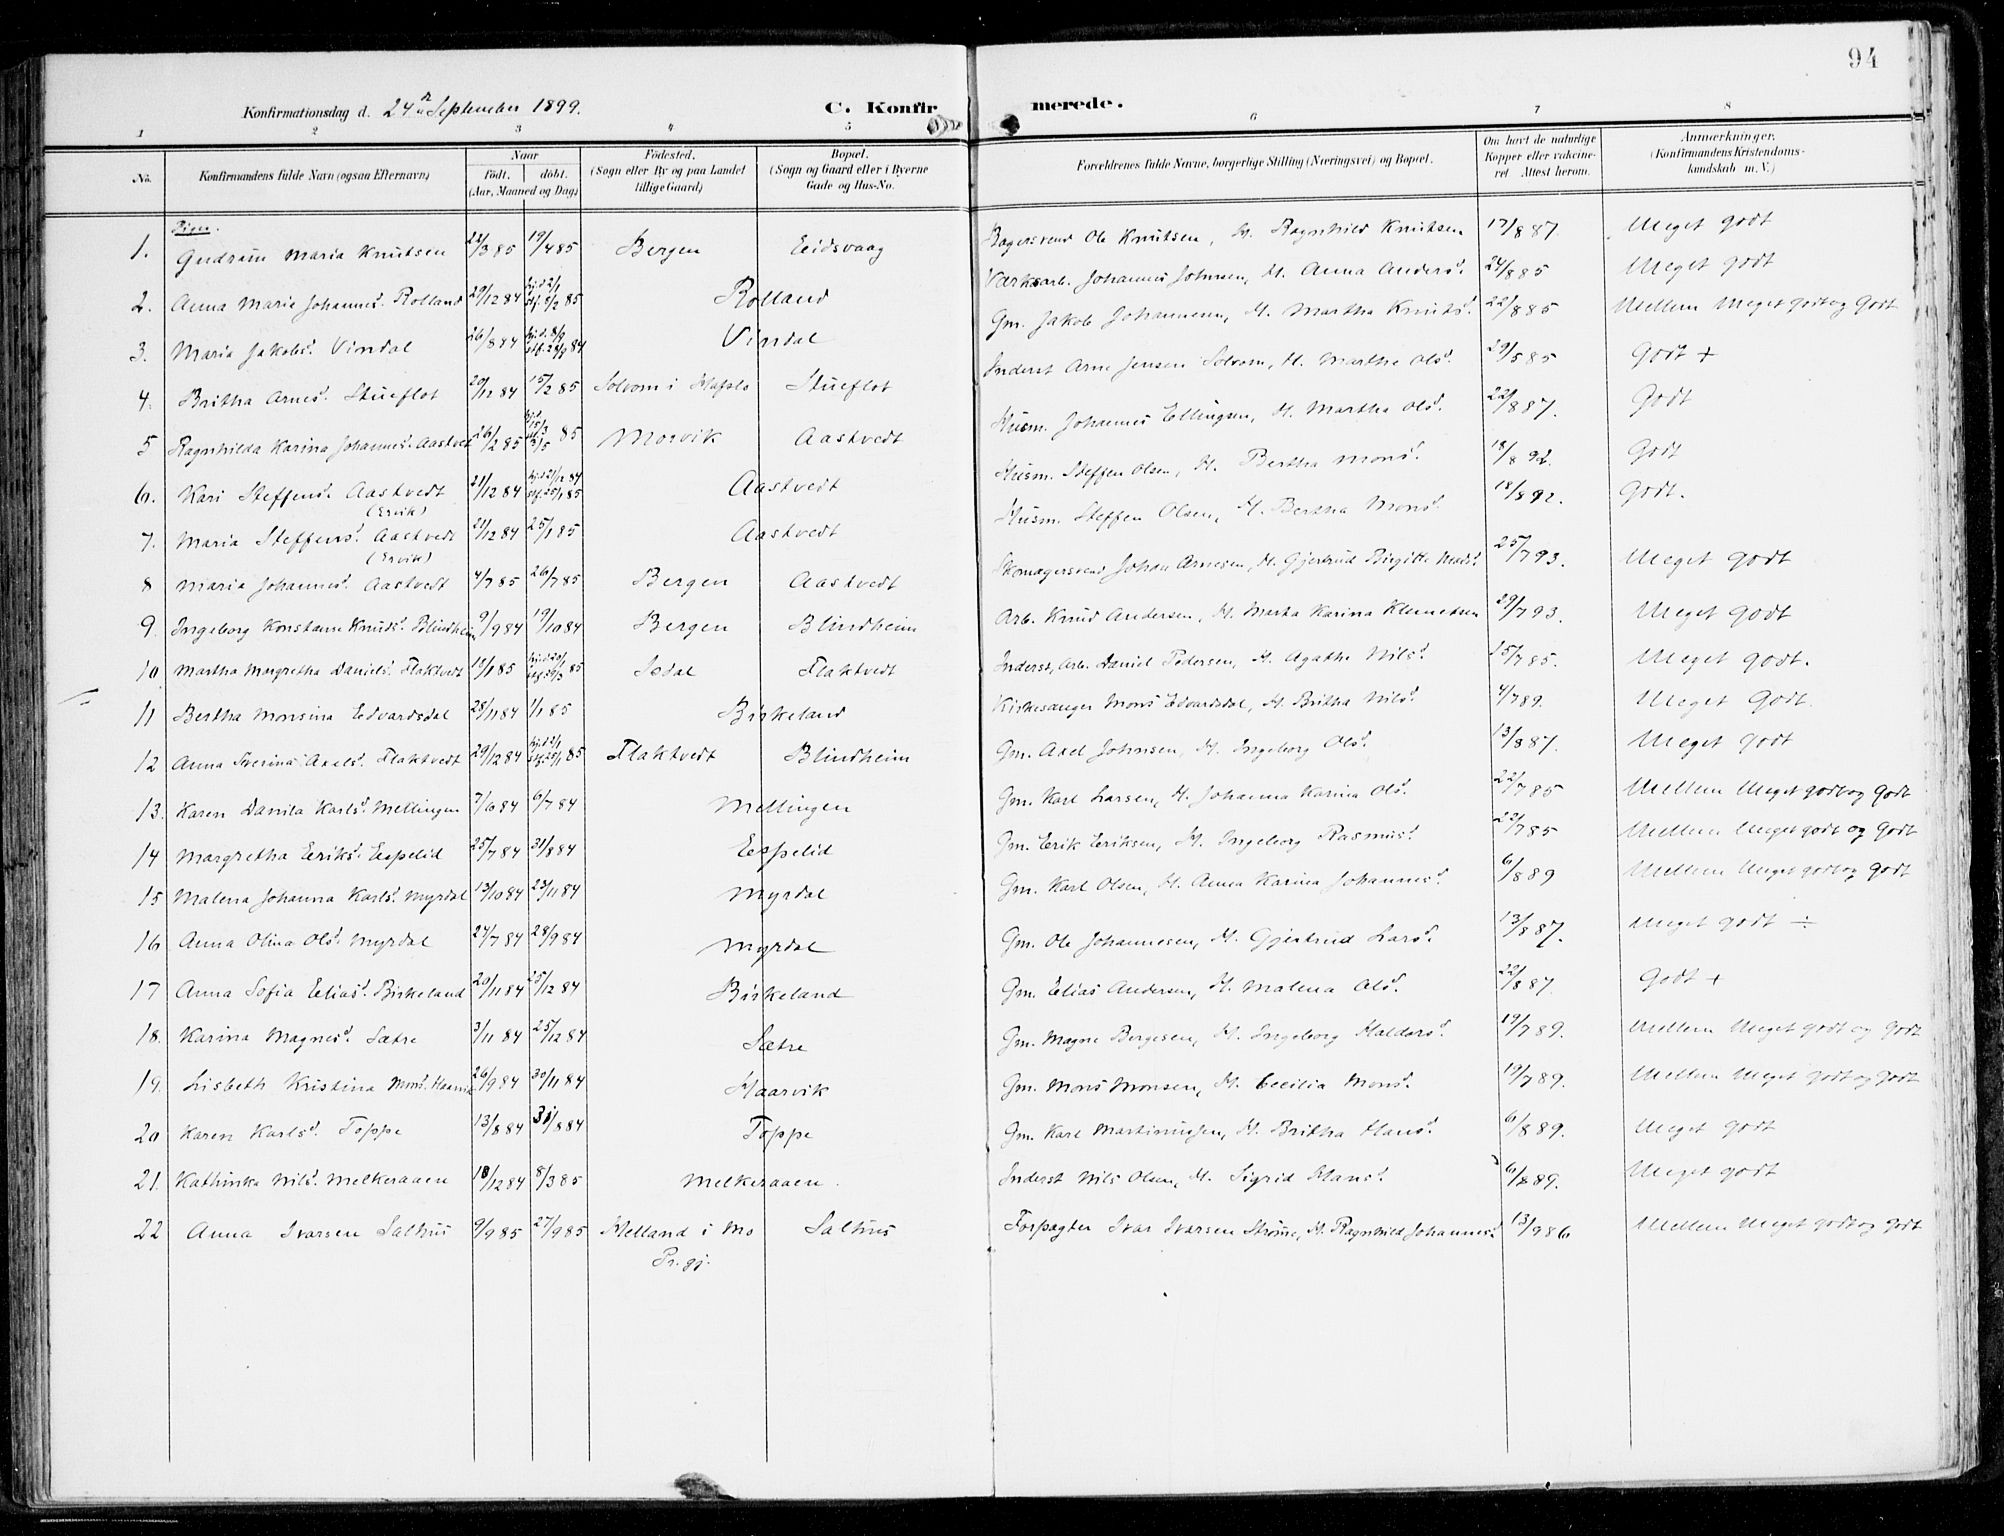 94
Konfirmationsdag d. 24de September 1899. C. Konfirmerede.
1 2 3 4 5 6 7 8
No. Konfirmandens fulde Navn (ogsaa Efternavn) Naar født. døbt. (Aar, Maaned og Dag) Fødested. (Sogn eller By og paa Landet tillige Gaard) Bopæl. (Sogn og Gaard eller i Byerne Gade og Hus-No. Forældrenes fulde Navne, borgerlige Stilling (Næringsvei) og Bopæl. Om havt de naturlige Kopper eller vakcineret Attest herom. Anmærkninger. (Konfirmandens Kristendomskundskab m. V.)
Piger.
1. Gudrun Maria Knutsen 22/3 85 19/4 85 Bergen Eidsvaag Bagersvend Ole Knutsen, H. Ragnhild Knutsen 17/8 87 Meget godt
2. Anna Marie Johannesd. Rolland 29/12 84 hjd. 2/1 stf. 8/2 85 Rolland Værksarb. Johannes Johnsen, H. Anna Andersd. 24/8 85 Meget godt
3. Maria Jakobsd. Vindal 26/8 84 hjd. 8/9 stf. 28/9 84 Vindal Gm. Jakob Johannesen, H. Martha Knutsd. 22/8 85 Mellem Meget godt og Godt
4. Britha Arnesd. Stueflot 20/12 84 15/2 85 Solvom i Hafslo Stueflot Inderst Arne Jensen Solvom, H. Martha Olsd. 29/5 85 Godt +
5 Ragnhilda Karina Johannesd. Aastvedt 26/2 85 hjd. 15/3 stf. 3/5 85 Morvik Aastvedt Husm. Johannes Ellingsen, H. Martha Olsd. 22/8 87. Godt
6. Kari Steffensd. Aastvedt (Ervik) 21/12 84 hjd. 21/12 84 stf. 25/1 85 Aastvedt Husm. Steffen Olsen, H. Bertha Monsd. 18/8 92. Godt
7. Maria Steffensd. Aastvedt (Ervik) 21/12 84 25/1 85 Aastvedt Husm. Steffen Olsen, H. Bertha Monsd. 18/8 92. Godt.
8 Maria Johannesd. Aastvedt 4/7 85 26/7 85 Bergen Aastvedt Skomagersvend Johan Arnesen, H. Gjertrud Birgitte Madsd. 25/7 93. Meget godt
9. Ingeborg Konstanse Knudsd. Blindheim 9/9 84 19/10 84 Bergen Blindheim Arb. Knud Andersen, H. Marta Karina Klemetsen 29/7 93. Meget godt
10 Martha Margretha Danielsd. Flaktvedt 19/1 85 hjd. 20/1 stf. 29/3 85 Isdal Flaktvedt Inderst, Arb. Daniel Pedersen, H. Agathe Nilsd. 25/7 85. Meget godt.
11 Bertha Monsina Edvardsdal 28/11 84 1/1 85 Birkeland Kirkesanger Mons Edvardsdal, H. Britha Nilsd. 4/7 89. Meget Godt.
12 Anna Severina Axelsd. Flaktvedt 29/12 84 hjd. 2/1 stf. 25/1 85 Flaktvedt Blindheim Gm. Axel Johnsen, H. Ingeborg Olsd. 13/8 87. Meget godt
13. Karen Danila Karlsd. Mellingen 7/6 84 6/7 84 Mellingen Gm. Karl Larsen, H. Johanna Karina Olsd. 22/7 85 Mellem Meget godt og godt
14 Margretha Eriksd. Espelid 25/7 84 31/8 84 Espelid Gm. Erik Eriksen, H. Ingeborg Rasmusd. 22/7 85 Mellem Meget godt og Godt
15 Malena Johanna Karlsd. Myrdal 13/10 84 23/11 84 Myrdal Gm. Karl Olsen, H. Anna Karina Johannesd. 6/8 89 Mellem Meget godt og godt
16 Anna Olina Olsd. Myrdal 24/7 84 28/9 84 Myrdal Gm. Ole Johannesen, H. Gjertrud Larsd. 13/8 87. Meget godt ÷
17 Anna Sofia Eliasd. Birkeland 20/11 84 25/12 84 Birkeland Gm. Elias Andersen, H. Malena Olsd. 22/8 87. Godt +
18. Karina Magnesd. Sætre 3/11 84 25/12 84 Sætre Gm. Magne Børgesen, H. Ingeborg Haldorsd. 19/7 89. Mellem Meget godt og Godt
19. Lisbeth Kristina Monsd. Haarvik 26/9 84 30/11 84 Haarvik Gm. Mons Monsen, H. Cecilia Monsd. 19/7 89. Mellem Meget godt og godt
20 Karen Karlsd. Toppe 13/8 84 31/8 84 Toppe Gm. Karl Martinussen, H. Britha Hansd. 6/8 89. Meget godt
21. Kathinka Nilsd. Melkeraaen 18/12 84 8/3 85 Melkeraaen. Inderst Nils Olsen, H. Sigrid Hansd. 6/8 89. Meget godt
22 Anna Ivarsen Salhus 9/9 85 27/9 85 Helland i Mo Pr.gj. Salhus Forpagter Ivar Ivarsen Strømme, H. Ragnhild Johannesd. 13/9 86 Mellem Meget godt og Godt